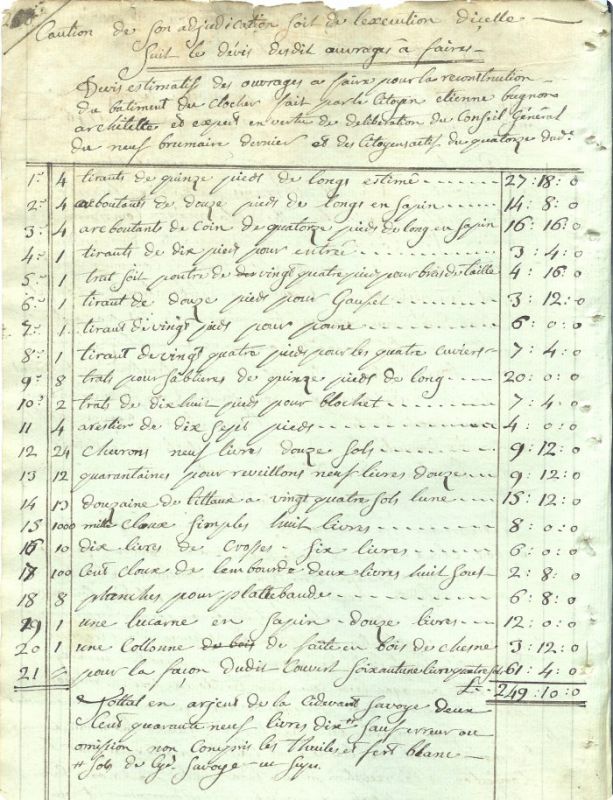 Caution de son adjudication soit de lexecution dicelle
Suit le dévis desdit ouvrages à faires
Devis estimatif des ouvrages a faire pour la reconstruction
du bâtiment du Clocher fait par le Citoyen etienne
architette et expert en vertu de deliberation du Conseil Général
du neuf brumaire dernier et des Citoyens actifs du quatorze dud.
1º 4 tirants de quinze pieds de longs estimé 27:18:0
2º 4 areboutants de douze pieds de longs en sapin 14:8:0
3º 4 areboutants de Coin de quatorze pieds de long en sapin 16:16:0
4º 1 tirants de dix pied pour entrée 3:4:0
5º 1 trat soit poutre de vingt quatre pied pour bras de taille 4:16:0
6º 1 tiraut de douze pieds pour 3:12:0
7º 1 tiraut de vingt pieds pour 6:0:0
8º 1 tiraut de vingt quatre pieds pour les quatre 7:4:0
9º 8 trats pour sablieres de quinze pieds de long 20:0:0
10º 2 trats de dix huit pieds pour blochet 7:4:0
11 4 arestier de dix sept pieds 4:0:0
12 24 chevrons neuf livres douze sols 9:12:0
13 12 quarantaines pour reveillons neuf livres douze 9:12:0
14 13 douzaine de littaux a vingt quatre sols lune 15:12:0
15 1000 mille Cloux simples huit livres 8:0:0
16 10 dix livres de Crosses six livres 6:0:0
17 100 Cent Cloux de lembourde deux livres huit sous 2:8:0
18 8 planches pour plattebande 6:8:0
19 1 une lucarne en sapin douze livres 12:0:0
20 1 une Collonne de bois de faite en bois de chesne 3:12:0
21 pour la façon dudit Couvert soixantune livre quatre sols 61:4:0
L. 249:10:0
Tottal en arjent de la Cidevant Savoye deux
Cent quarante neuf livres dix # sauf erreur ou
omission, non Compris les Thuiles et fert blanc
# sols de Savoye